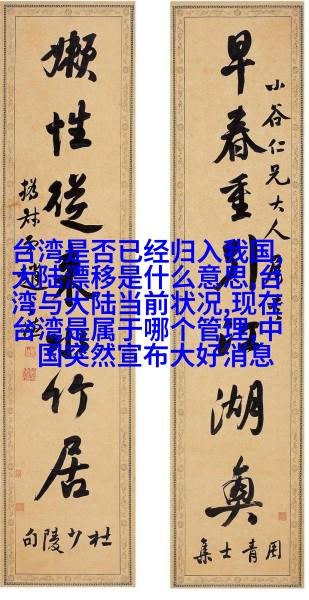 早春重引湖興
小谷仁兄大人
周青士集
嬾性從竹居
杜少陵句
撝叔弟趙
台湾是否已经归入我国,
大陆漂移是什么意思,台
湾与大陆当前状况,现在
台湾是属于哪个管理,中
国突然宣布大好消息